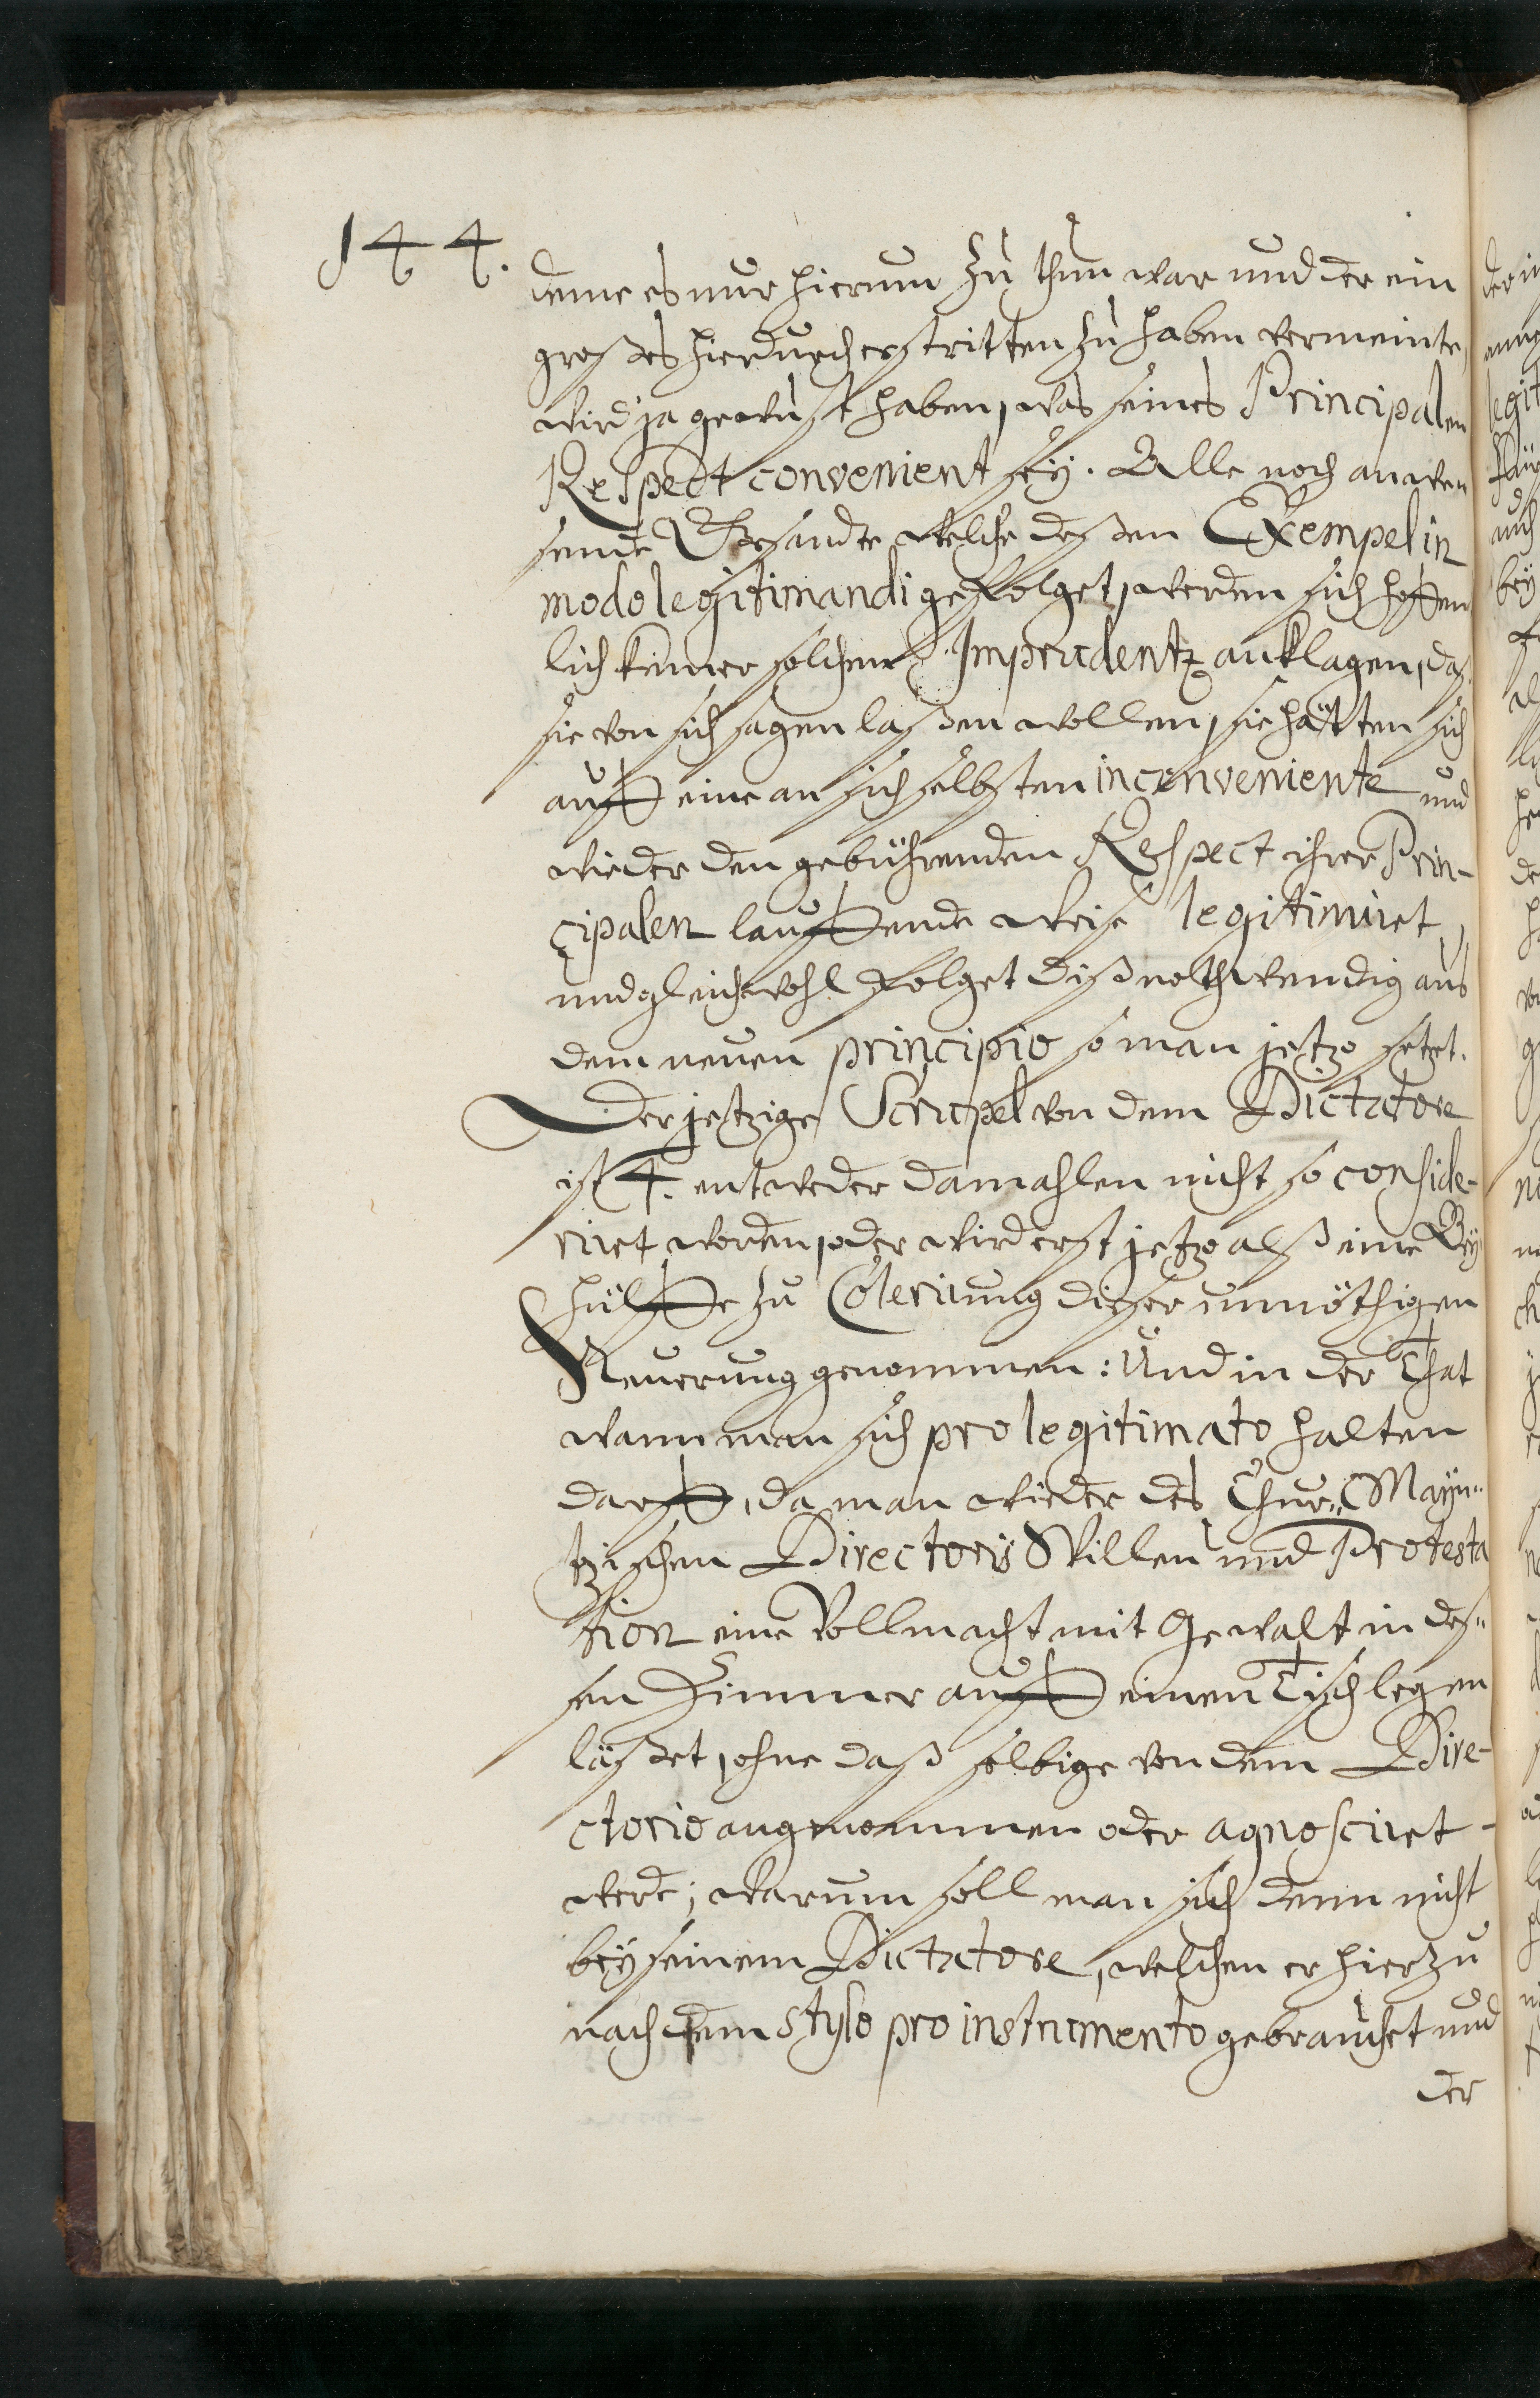 144.
deme es nur hierum zu thun war und der ein
großes hierdurch erstritten zu haben vermeinte,
wird ja gewust haben, was seines Principalen
Respect convenient sey. Alle noch anwe-
sende Gesandte welche deßen Exempel in
modo legitimandi gefolget, werden sich hoffen
lich keiner solchen Imprudentz anklagen, daß
sie von sich sagen laßen wollen, sie hätten sich
auff eine an sich selbsten inconveniente und
wieder den gebührenden Respect ihrer Prin-
cipalen lauffende weise legitimiret,
und gleichwohl folget diß nothwendig aus
dem neuen principio so man jetzo setzet.
Der jetzige Scrupel von dem Dictatore
ist 4. entweder damahlen nicht so conside-
riret worden, oder wird erst jetzo alß eine Bey
hülffe zu Colerirung dieser unnöthigen
Neuerung genommen: Und in der That
wann man sich pro legitimato halten
darff, da man wieder des Chur-Mayn-
tzischen Directorii Willen und Protesta
tion eine Vollmacht mit Gewalt in deß-
sen Zimmer auff einen Tisch legen
läßet, ohne daß selbige von dem Dire-
ctorio angenommen oder agnosciret
werde; warum soll man sich denn nicht
bey seinem Dictatore, welchen er hierzu
nach dem stylo pro instrumento gebrauchet und
der